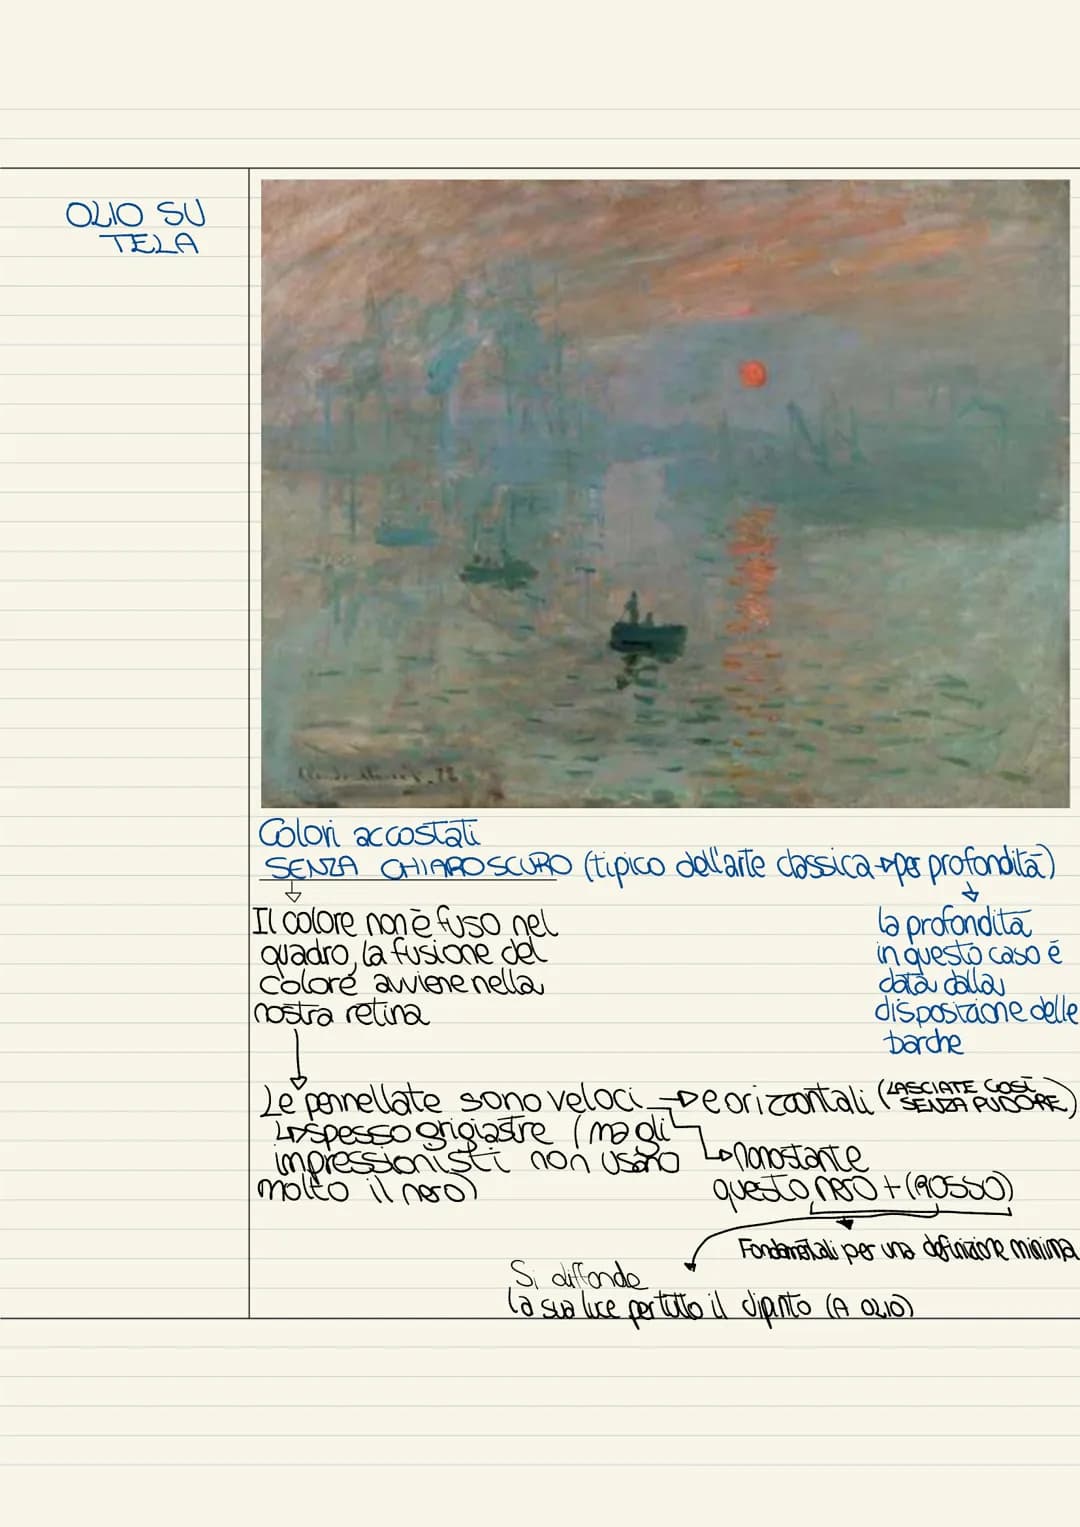 OLIO SU
TELA
Claude Monet. 72
Colori accostati
SENZA CHIAROSCURO (tipico dell'arte classica → per profondità)
Il colore non è fuso nel
quadro, la fusione del
colore avviene nella
nostra retina
la profondità
in questo caso é
data dalla
disposizione delle
barche
Le pennellate sono veloci → e orizzontali (LASCIATE COSÌ
SENZA PUDORE)
↳ spesso grigiastre (ma gli
impressionisti non usano
molto il nero)
↳ nonostante
questo nero + (ROSSO)
Fondamentali per una definizione minima
Si diffonde
la sua luce per tutto il dipinto (A OLIO)